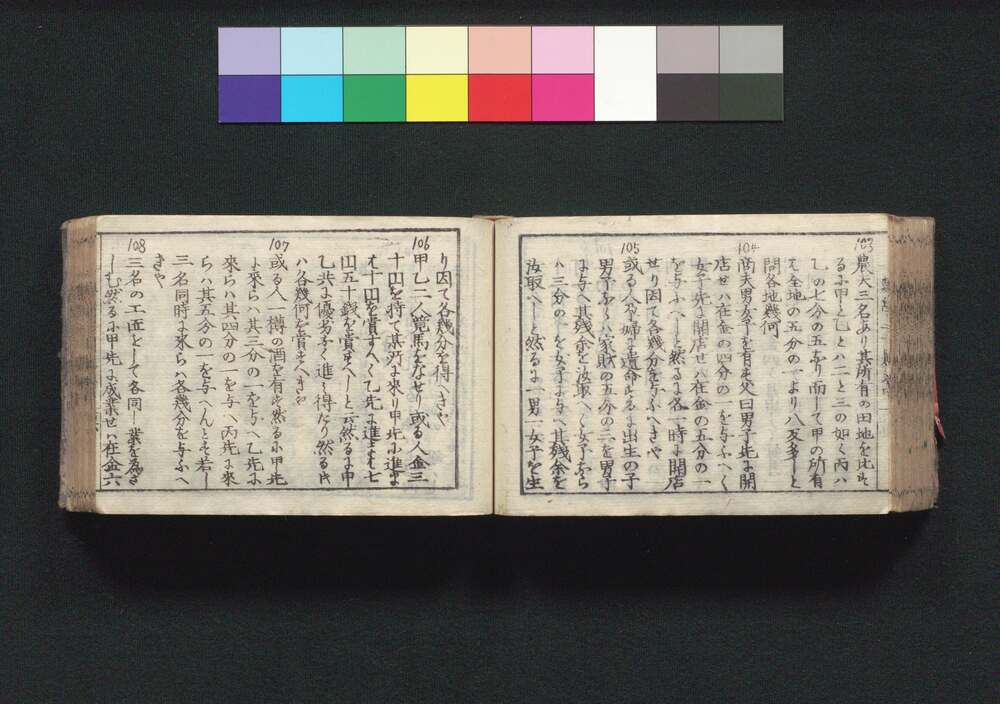 103
農夫三名あり其所有の田地を比す
るに甲と乙とハ二と三の如く丙ハ
乙の七分の五なり而して甲の所有
ハ全地の五分の一より八反多しと
問各地幾何
104
商夫男女子を有す父曰男子先に開
店せハ在金の四分の一を与ふへく
女子先に開店せハ在金の五分の一
を与ふへしと然るに各一時に開店
せり因て各幾分を与ふへきや
105
或る人令婦に遺命するに出生の子
男子ならハ家財の五分の三を男子
に与へ其残余を汝取へく女子なら
ハ三分の一を女子に与へ其残余を
汝取へしと然るに一男一女子を生
り因て各幾分を得へきや
106
甲乙二人競馬をなせり或る人金三
十円を持て某所に来り甲先に進まは
十円を賞すへく乙先に進まは七
円五十銭を賞すへしと云然るに甲
乙共に優劣なく進ミ得たり然る時
ハ各幾何を賞すへきや
107
或る人一樽の酒を有す然るに甲先
に来らハ其三分の一を与へ乙先に
来らハ其四分の一を与へ丙先に来
らハ其五分の一を与へんとす若し
三名同時に来らハ各幾分を与ふへ
きや
108
三名の工匠をして各同し業を為さ
しむ然るに甲先に成業せハ在金六